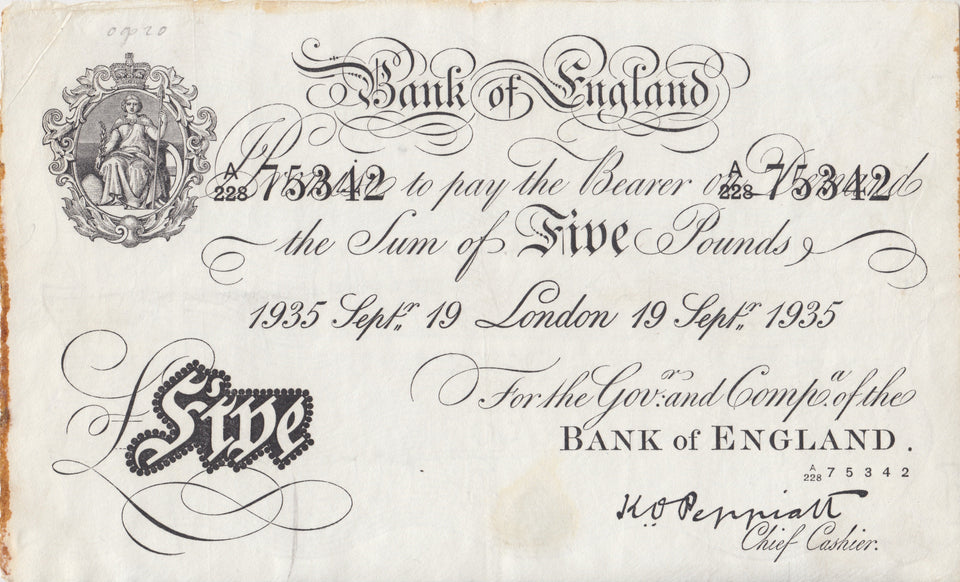 0920
Bank of England
A
228 75342
A
228 75342
I Promise to pay the Bearer on Demand
the Sum of Five Pounds
1935 Septr 19 London 19 Septr 1935
£Five
For the Govr: and Compa. of the
BANK of ENGLAND.
A
228 75342
K.O Peppiatt
Chief Cashier.